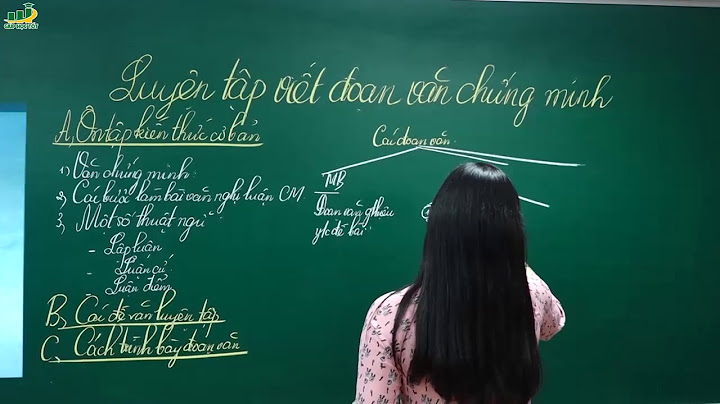 GAP HỌC TỐT
Luyện tập viết đoạn văn chứng minh
A, Ôn tập kiến thức cơ bản
1) Văn chứng minh
2) Các bước làm bài văn nghị luận CM.
3, Một số thuật ngữ
- Lập luận
- Luận cứ
- Luận điểm
B, Các đề văn luyện tập
C, Cách trình bày đoạn văn
Các đoạn văn.
MB
Đoạn văn gthiệu
y/c đề bài